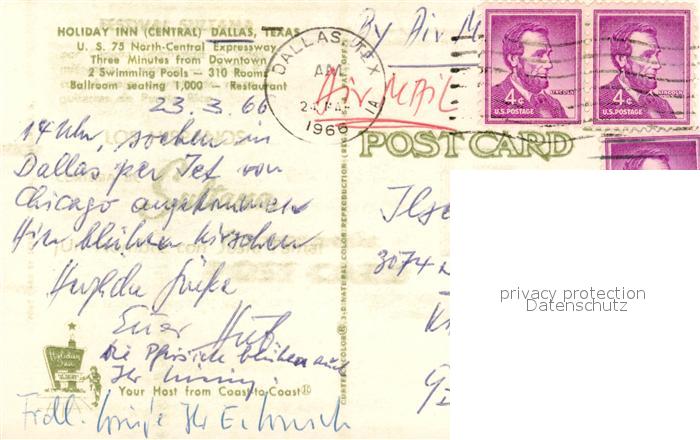 HOLIDAY INN (CENTRAL) DALLAS, TEXAS
U. S. 75 North-Central Expressway
Three Minutes from Downtown
2 Swimming Pools — 310 Rooms
Ballroom seating 1,000 — Restaurant
By Air M
Air MAIL
DALLAS, TEX
AM
1966
LINCOLN
4¢
U.S. POSTAGE
LINCOLN
4¢
U.S. POSTAGE
POST CARD
23.3.66
14 Uhr, soeben in
Dallas per Jet von
Chicago angekommen
Hier blühen Kirschen
Herzliche Grüße
Euer
die Pfirsiche blühen auch
Ihr
Holiday Inn
Your Host from Coast to Coast®
Frdl. Grüße Ihr
Ilse
3074
privacy protection
Datenschutz